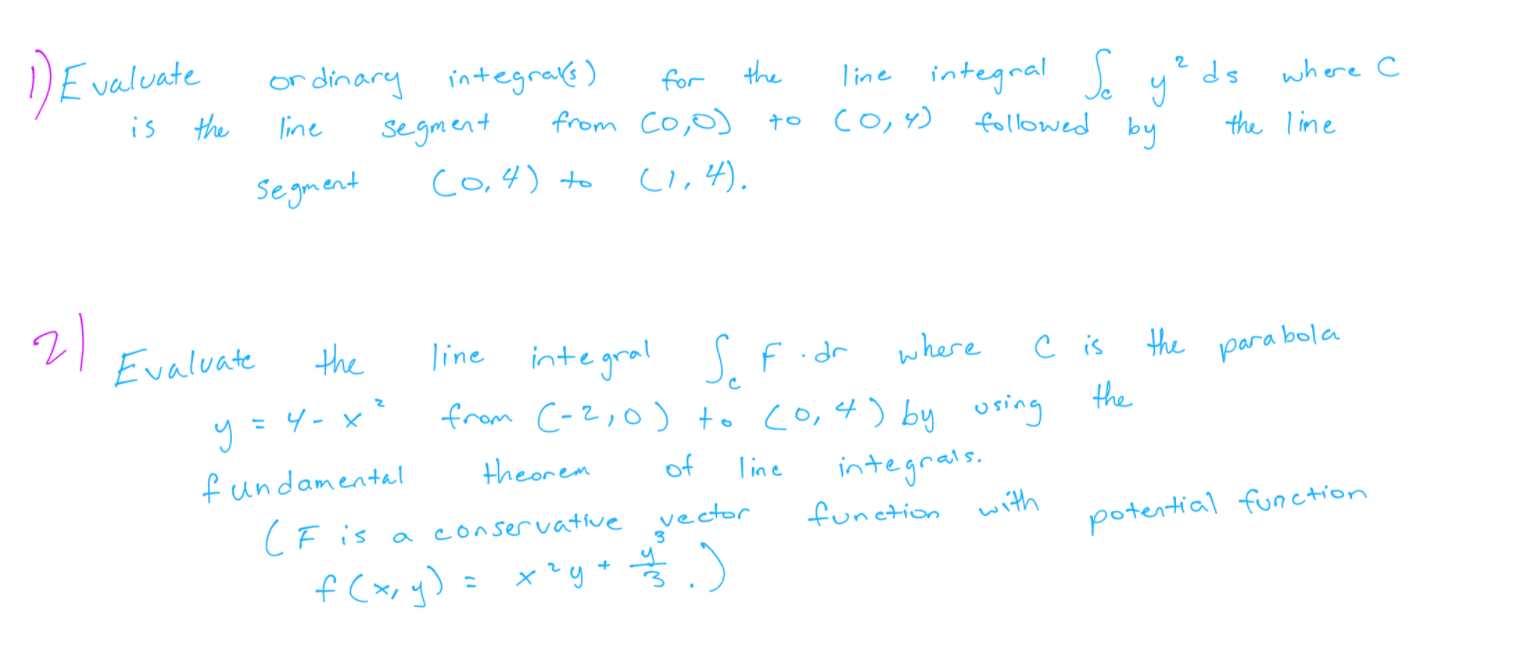 1) Evaluate ordinary integral(s) for the line integral ∫_C y² ds where C
is the line segment from (0,0) to (0,4) followed by the line
segment (0,4) to (1,4).
2) Evaluate the line integral ∫_C F · dr where C is the parabola
y = 4 - x² from (-2,0) to (0,4) by using the
fundamental theorem of line integrals.
(F is a conservative vector function with potential function
f(x,y) = x²y + y³/3.)